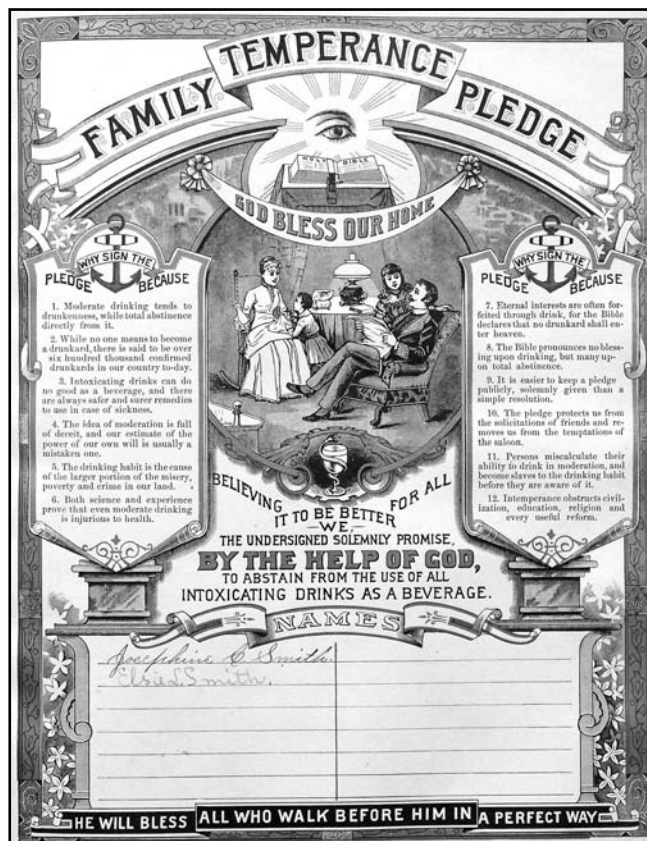 FAMILY TEMPERANCE PLEDGE
HOLY BIBLE
GOD BLESS OUR HOME
WHY SIGN THE
PLEDGE BECAUSE
1. Moderate drinking tends to
drunkenness, while total abstinence
directly from it.
2. While no one means to become
a drunkard, there is said to be over
six hundred thousand confirmed
drunkards in our country to-day.
3. Intoxicating drinks can do
no good as a beverage, and there
are always safer and surer remedies
to use in case of sickness.
4. The idea of moderation is full
of deceit, and our estimate of the
power of our own will is usually a
mistaken one.
5. The drinking habit is the cause
of the larger portion of the misery,
poverty and crime in our land.
6. Both science and experience
prove that even moderate drinking
is injurious to health.
WHY SIGN THE
PLEDGE BECAUSE
7. Eternal interests are often for-
feited through drink, for the Bible
declares that no drunkard shall en-
ter heaven.
8. The Bible pronounces no bless-
ing upon drinking, but many up-
on total abstinence.
9. It is easier to keep a pledge
publicly, solemnly given than a
simple resolution.
10. The pledge protects us from
the solicitations of friends and re-
moves us from the temptations of
the saloon.
11. Persons miscalculate their
ability to drink in moderation, and
become slaves to the drinking habit
before they are aware of it.
12. Intemperance obstructs civil-
ization, education, religion and
every useful reform.
BELIEVING IT TO BE BETTER FOR ALL
—WE,—
THE UNDERSIGNED SOLEMNLY PROMISE,
BY THE HELP OF GOD,
TO ABSTAIN FROM THE USE OF ALL
INTOXICATING DRINKS AS A BEVERAGE.
NAMES
Josephine C Smith.
Elsie L. Smith.
HE WILL BLESS ALL WHO WALK BEFORE HIM IN A PERFECT WAY